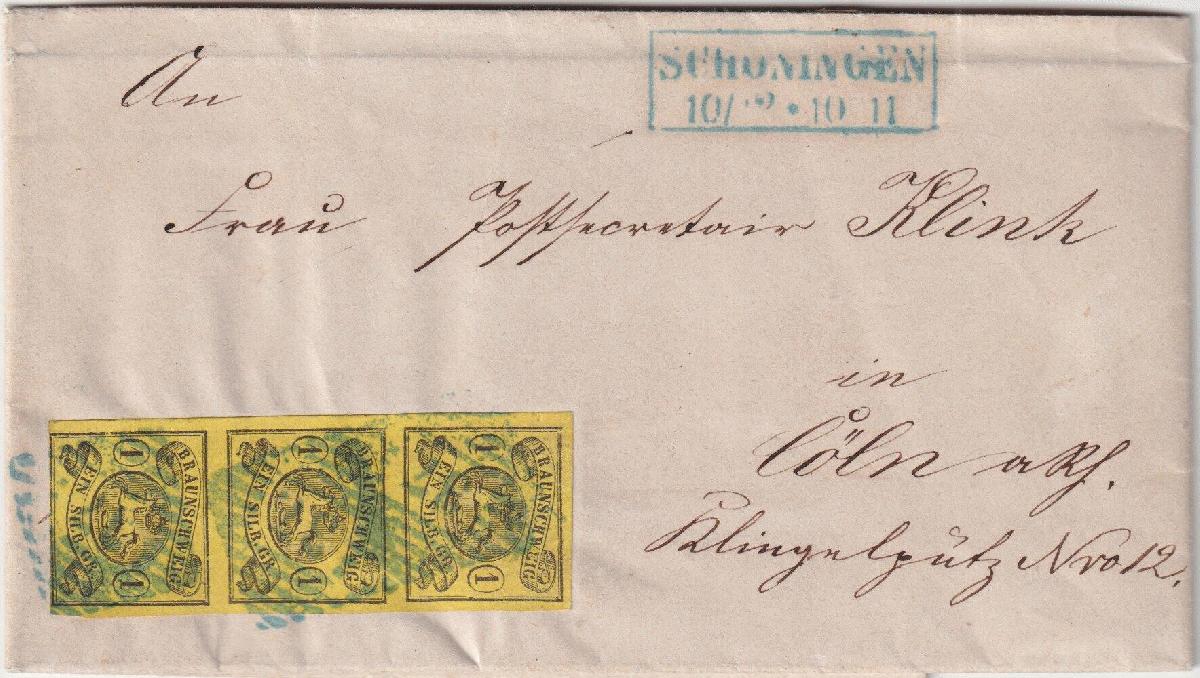 SCHÖNINGEN
10/ 10 11
An
Frau Postsecretair Klink
in
Cöln a Rh.
Klingelpütz Nro 12.
BRAUNSCHWEIG
1 1
EIN SILB.GR
BRAUNSCHWEIG
1 1
EIN SILB.GR
BRAUNSCHWEIG
1 1
EIN SILB.GR